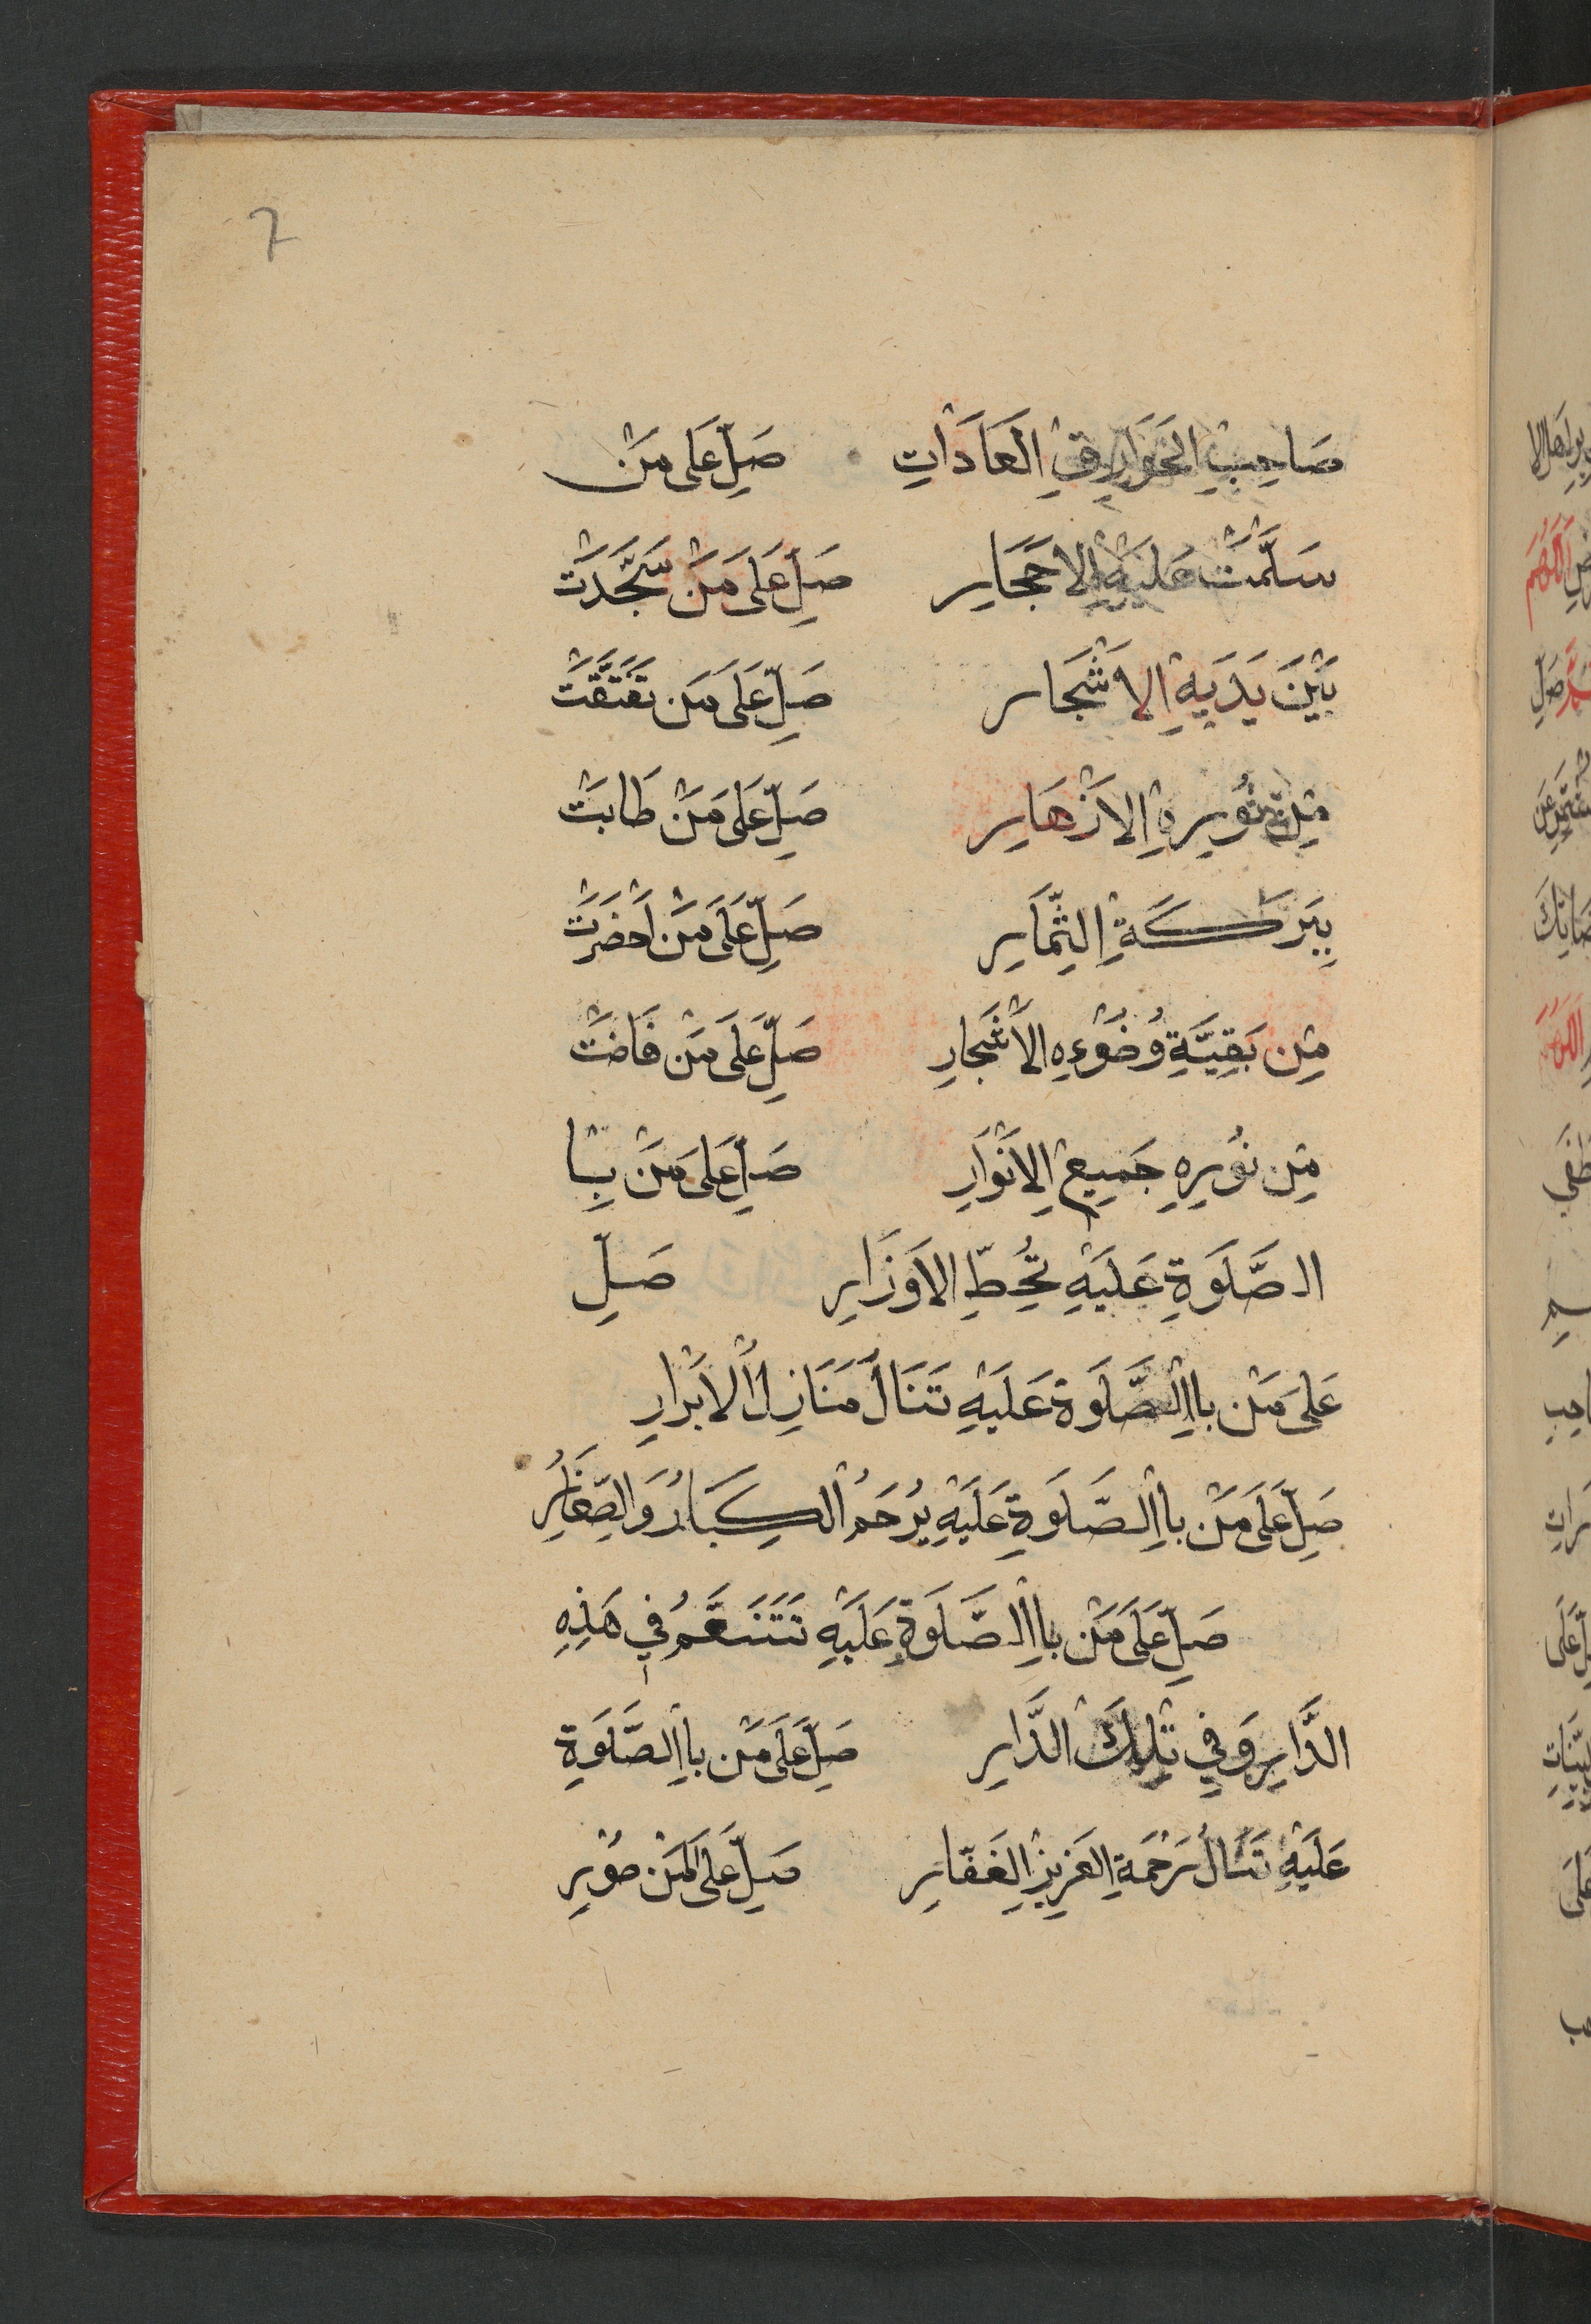 7
صَاحِبِ الخَوَارِقِ العَادَاتِ صَلِّ عَلَى مَنْ
سَلَّمَتْ عَلَيْهِ الاَحْجَارِ صَلِّ عَلَى مَنْ سَجَّدَتْ
بَيْنَ يَدَيْهِ الاَشْجَار صَلِّ عَلَى مَن تَفَتَّقَتْ
مِنْ نُورِهِ الاَزْهَارِ صَلِّ عَلَى مَنْ طَابَتْ
بِبَركَةِ الثِّمَارِ صَلِّ عَلَى مَنْ اَخْضَرَتْ
مِن بَقِيَّةِ وُضُوْءِهِ الاَشْجَارِ صَلِّ عَلَى مَنْ فَاضَتْ
مِن نُورِهِ جَمِيعِ الاَنْوَارِ صَلِّ عَلَى مَنْ بِا
الصَّلَوةِ عَلَيْهِ تُحَطِّ الاَوْزَارِ صَلِّ
عَلَى مَنْ بِاالصَّلَوةِ عَلَيْهِ تَنَالُ مَنَازِلُ الاَبْرَارِ
صَلِّ عَلَى مَنْ بِاالصَّلَوةِ عَلَيْهِ يُرْحَمُ الكِبَارُ وَالصِّغَارُ
صَلِّ عَلَى مَنْ بِاالصَّلَوةِ عَلَيْهِ تَتَنَعَّمُ فِي هَذِهِ
الدَّارِ وَفِي تِلْكَ الدَّارِ صَلِّ عَلَى مَنْ بِاالصَّلَوةِ
عَلَيْهِ تَنَالُ رَحْمَةِ العَزِيزِ الغَفَّارِ صَلِّ عَلَى